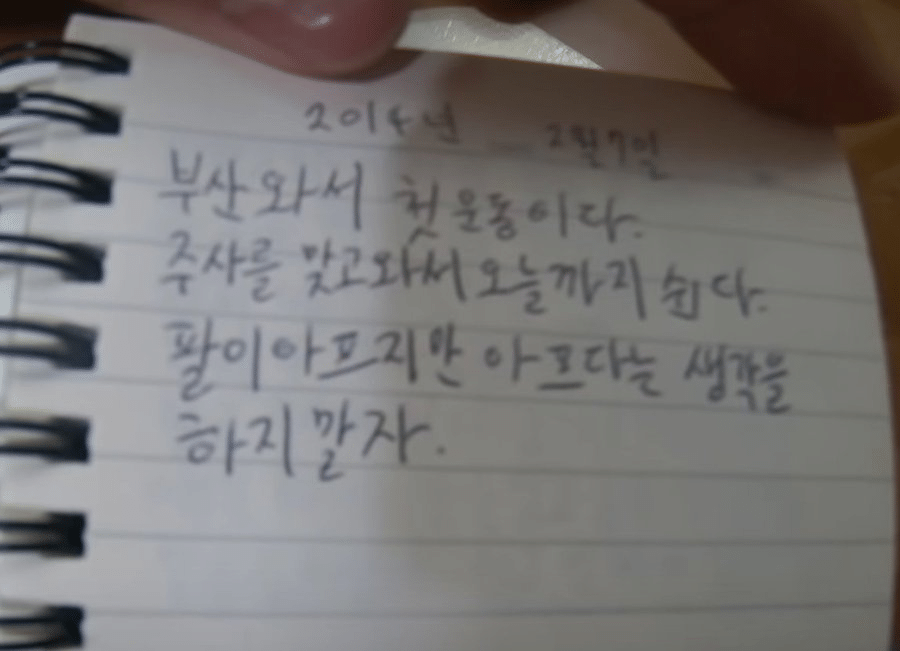 2014년 2월7일
부산와서 첫운동이다.
주사를 맞고와서 오늘까지 쉰다.
팔이아프지만 아프다는 생각을
하지말자.